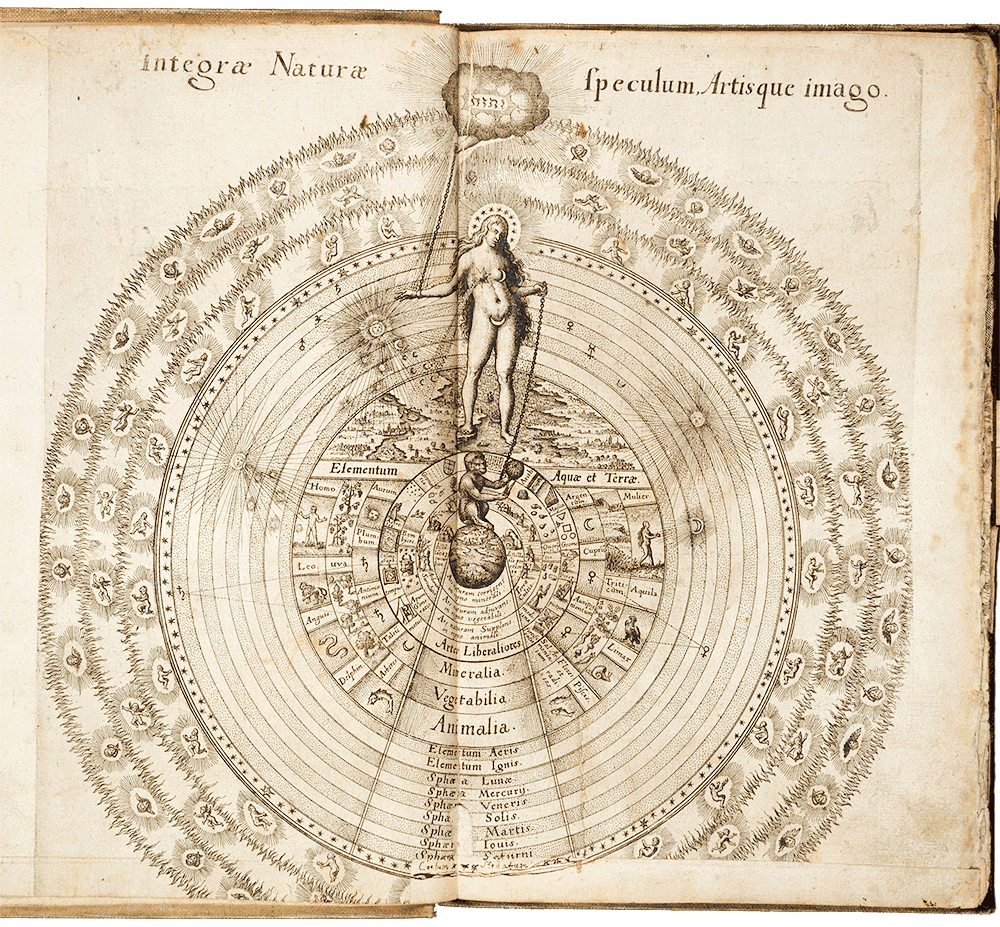 Integræ Naturæ
Speculum, Artisque imago.
יהוה
Elementum
Aquæ et Terræ.
Homo
Aurum
Argen
tum
Mulier
Plum-
bum
Cuprū
Leo.
uva.
Triti-
cum
Aquila
Anguis
Limax
Delphin
Pisces
Artes Liberaliores
Mineralia.
Vegetabilia
Animalia.
Elementum Aeris
Elementum Ignis.
Sphæra Lunæ.
Sphæra Mercurij.
Sphær Veneris
Sphæ Solis
Sphæ Martis.
Sphær Iouis.
Sphæra Saturni